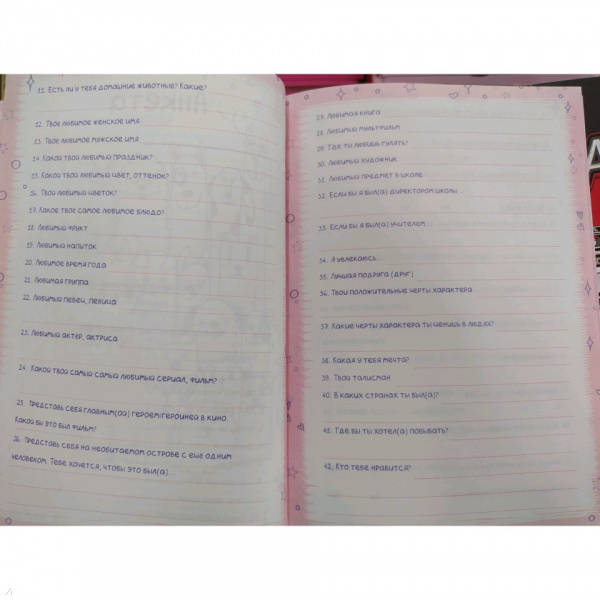 11. Есть ли у тебя домашние животные? Какие?
12. Твое любимое женское имя
13. Твое любимое мужское имя
14. Какой твой любимый праздник?
15. Какой твой любимый цвет, оттенок?
16. Твой любимый цветок?
17. Какое твое самое любимое блюдо?
18. Любимый фрукт
19. Любимый напиток
20. Любимое время года
21. Любимая группа
22. Любимый певец, певица
23. Любимый актер, актриса
24. Какой твой самый самый любимый сериал, фильм?
25. Представь себя главным(ой) героем/героиней в кино.
Какой бы это был фильм?
26. Представь себя на необитаемом острове с еще одним
человеком. Тебе хочется, чтобы это был(а)
Анкета
27. Любимая книга
28. Любимый мультфильм
29. Где ты любишь гулять?
30. Любимый художник
31. Любимый предмет в школе
32. Если бы я был(а) директором школы...
33. Если бы я был(а) учителем...
34. Я увлекаюсь...
35. Лучшая подруга (друг)
36. Твои положительные черты характера
37. Какие черты характера ты ценишь в людях?
38. Какая у тебя мечта?
39. Твой талисман
40. В каких странах ты был(а)?
41. Где бы ты хотел(а) побывать?
42. Кто тебе нравится?